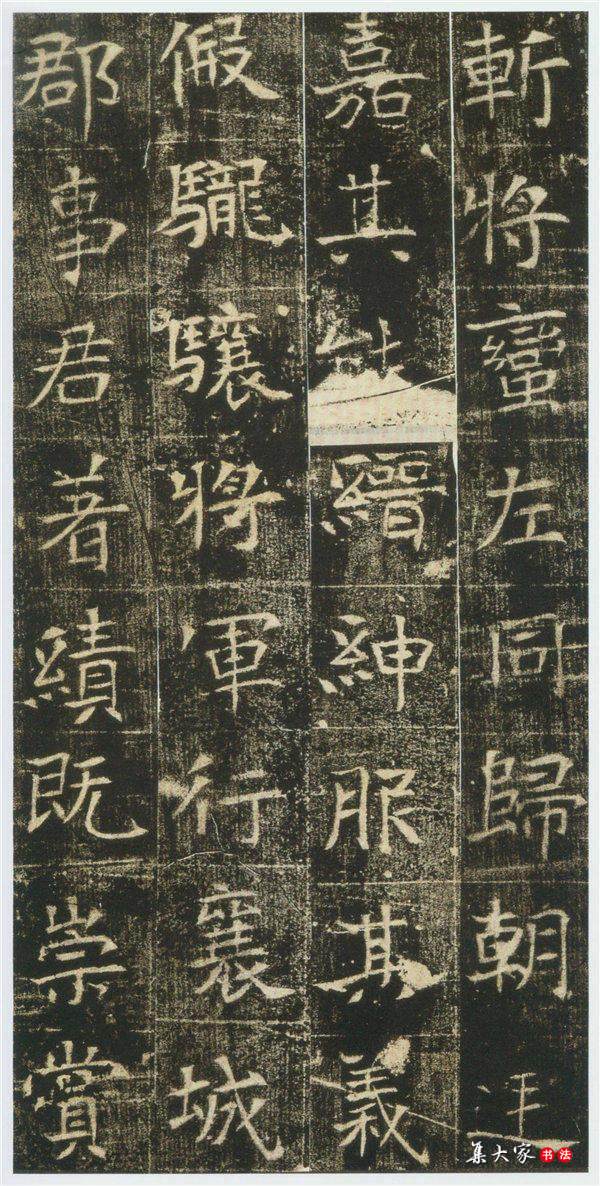 斬將蠻左同歸朝
嘉其縉紳服其義
假䮾驤將軍行襄城
郡事君著績既崇賞
集大家书法